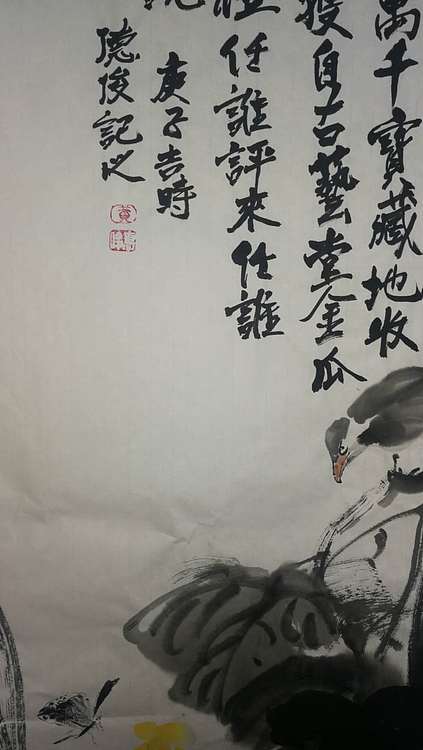 萬千寶藏地收
獲自古藝堂金瓜
任誰評來任誰
庚子吉時
德俊記之